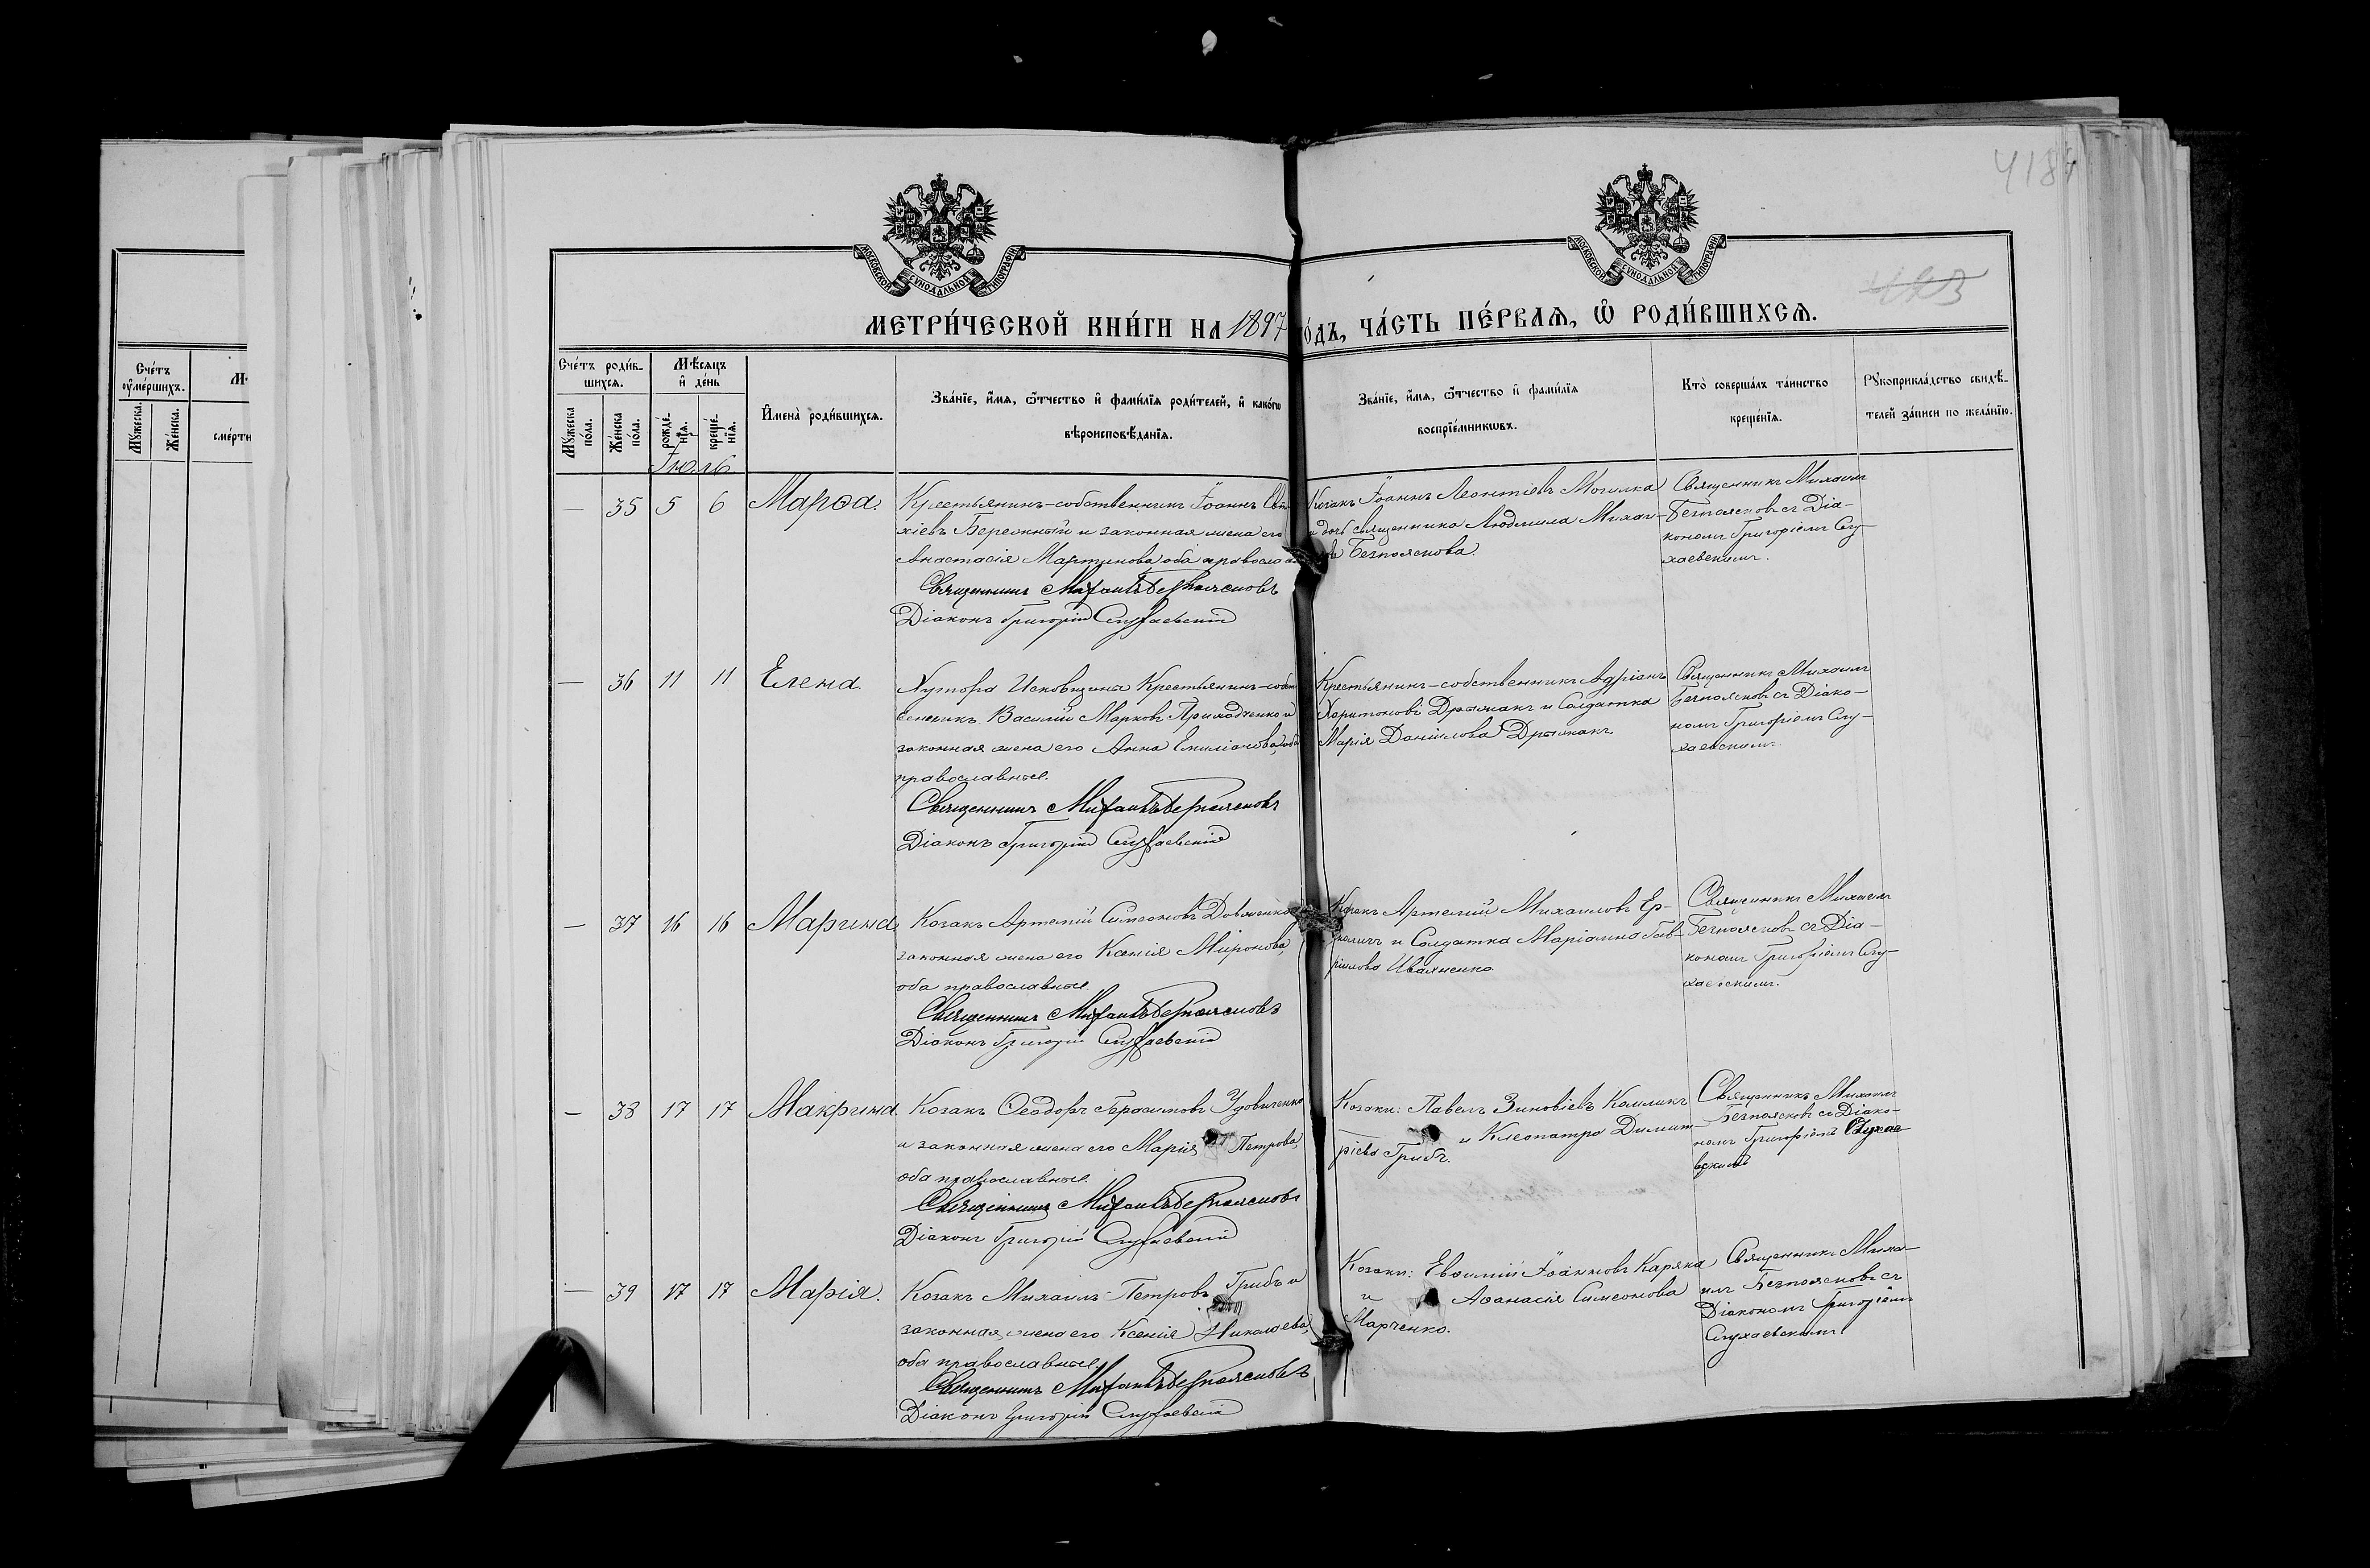 4187
423
МОСКОВСКОЙ СѴНОДАЛЬНОЙ ТИПОГРАФІИ
МОСКОВСКОЙ СѴНОДАЛЬНОЙ ТИПОГРАФІИ
МЕТРИ́ЧЕСКОЙ КНИ́ГИ НА 1897 ГО́ДЪ, ЧА́СТЬ ПЕ́РВАѦ, Ѽ РОДИ́ВШИХСѦ.
Сче́тъ ᲂумершихъ.
Мꙋ́жеска.
Же́нска.
М
сме́рти
Сче́тъ роди́вшихсѧ.
Мꙋ́жеска по́ла.
Же́нска по́ла.
Мѣ́сѧцъ и҆ де́нь
рожде́нїѧ.
креще́нїѧ.
И҆мена̀ роди́вшихсѧ.
Зва́нїе, и҆́мѧ, ѻ҆́тчество и҆ фами́лїѧ роди́телей, и҆ како́гѡ
вѣроисповѣ́данїѧ.
Зва́нїе, и҆́мѧ, ѻ҆́тчество и҆ фами́лїѧ
воспрїе́мникѡвъ.
Кто̀ соверша́лъ та́инство
креще́нїѧ.
Рꙋкоприкла́дство свидѣ́-
телей за́писи по жела́нїю.
Іюль
— 35 5 6 Марѳа.
Крестьянинъ-собственникъ Іоаннъ Евти-
хіевъ Бережный и законная жена его
Анастасія Мартинова оба православные
Священникъ Михаилъ Безпоясновъ
Діаконъ Григорій Слухаевскій
Козакъ Іоаннъ Леонтіевъ Могилка
и дочь священника Людмила Михаи-
Безпояснова.
Священникъ Михаилъ
Безпоясновъ съ Діа-
кономъ Григоріемъ Слу-
хаевскимъ.
— 36 11 11 Елена
Хутора Исковщина Крестьянинъ-собст-
венникъ Василій Марковъ Приходченко и
законная жена его Анна Емиліанова, оба
православные.
Священникъ Михаилъ Безпоясновъ
Діаконъ Григорій Слухаевскій
Крестьянинъ-собственникъ Адріанъ
Харитоновъ Дрыжакъ и Солдатка
Марія Даніилова Дрыжакъ
Священникъ Михаилъ
Безпоясновъ съ Діако-
номъ Григоріемъ Слу-
хаевскимъ.
— 37 16 16 Марина
Козакъ Артемій Симеоновъ Довженко
законная жена его Ксенія Миронова,
оба православные
Священникъ Михаилъ Безпоясновъ
Діаконъ Григорій Слухаевскій
Козакъ Артемій Михаиловъ Ер-
и Солдатка Маріамна Гав-
ріилова Иваненко
Священникъ Михаилъ
Безпоясновъ съ Діа-
кономъ Григоріемъ Слу-
хаевскимъ.
— 38 17 17 Макрина
Козакъ Ѳеодоръ Герасимовъ Удовиченко
и законная жена его Марія Петрова,
оба православные.
Священникъ Михаилъ Безпоясновъ
Діаконъ Григорій Слухаевскій
Козаки: Павелъ Зиновіевъ Камликъ
и Клеопатра Димит-
ріева Грибъ.
Священникъ Михаилъ
Безпоясновъ съ Діако-
номъ Григоріемъ Слухае-
вскимъ
— 39 17 17 Марія.
Козакъ Михаилъ Петровъ Грибъ и
законная жена его Ксенія Николаева,
оба православные.
Священникъ Михаилъ Безпоясновъ
Діаконъ Григорій Слухаевскій
Козаки: Евѳимій Іоанновъ Каряка
и Аѳанасія Симеонова
Марченко.
Священникъ Миха-
илъ Безпоясновъ съ
Діакономъ Григоріемъ
Слухаевскимъ